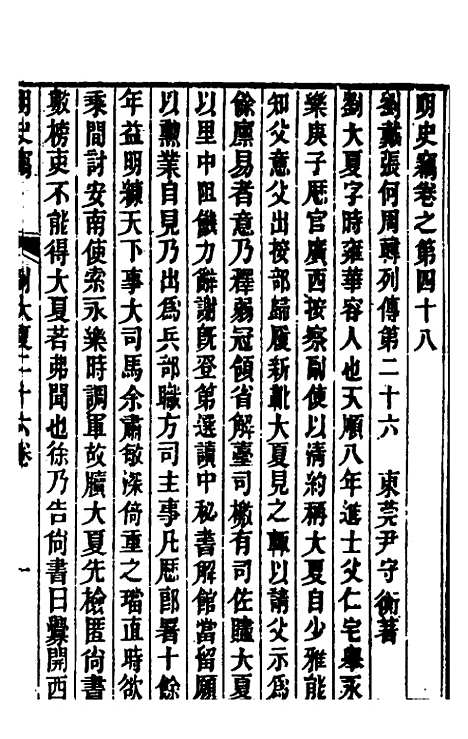 明史竊卷之第四十八
劉戴張何周韓列傳第二十六　東莞尹守衡著
劉大夏字時雍華容人也天順八年進士父仁宅舉永
樂庚子歷官廣西按察副使以清約稱大夏自少雅能
知父意父出按部歸履新靴大夏見之輒以請父示爲
餘廩易者意乃釋弱冠領省解臺司檄有司佐贐大夏
以里中阻饑力辭謝旣登第選讀中秘書解館當留願
以勲業自見乃出爲兵部職方司主事凡歷郎署十餘
年益明練天下事大司馬余肅敏深倚重之璫直時欲
乘間討安南使索永樂時調軍故牘大夏先檢匿尙書
數榜吏不能得大夏若弗聞也徐乃告尙書曰釁開西
明史竊　劉大夏二十六卷　一